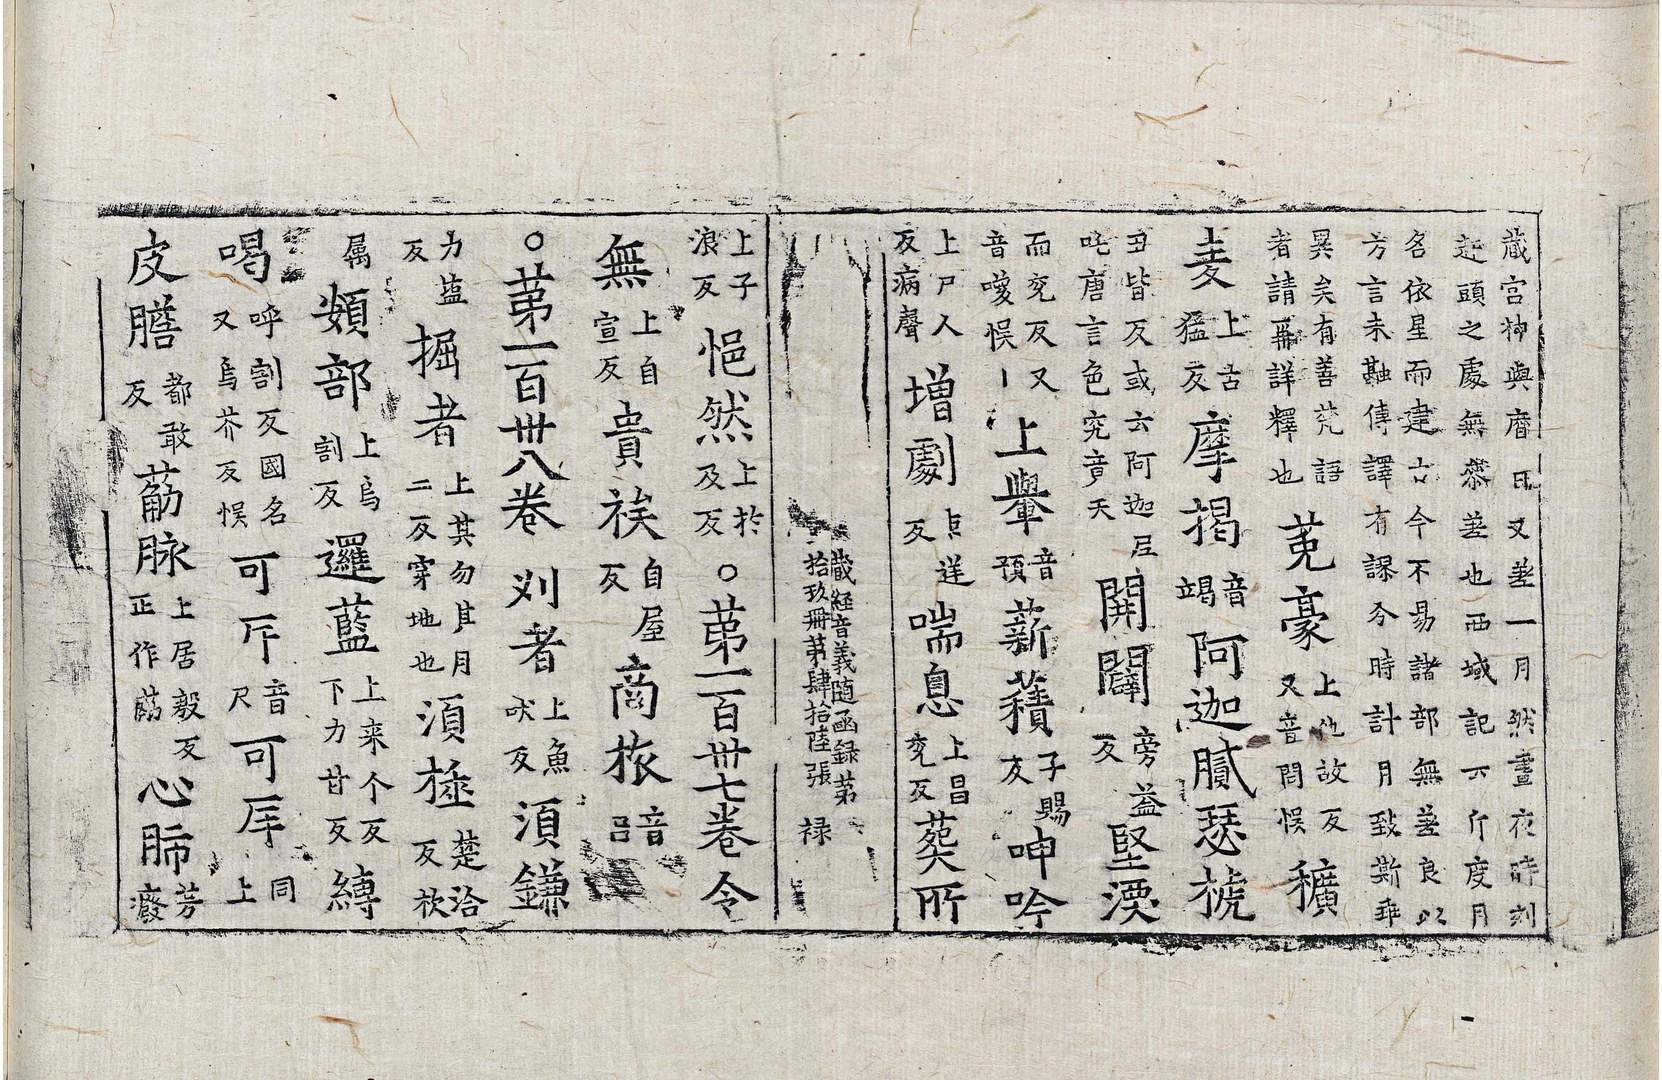 蔵宮神與曆日又差一月然晝夜時刻
起頭之處無忝差也西域記六斤度月
名依星而建古今不易諸部無差良以
方言未融傳譯有謬今時計月致斯乖
異矣有善梵語
者請再詳釋也
莵豪
上他故反
又音問悮
穬
麦
上古
猛反
摩揭
音
竭
阿迦膩瑟搋
丑皆反或云阿迦尼
吒唐言色究竟天
開闢
旁益
反
堅渜
而兖反又
音㬉悮
上轝
音
預
薪䅿
子賜
反
呻吟
上尸人
反病聲
增劇
巨逆
反
喘息
上昌
兖反
葬所
蔵経音義随函録第
拾玖冊第肆拾陸張 禄
上子
浪反
悒然
上扵
及反
○第一百卅七卷
令
無
上自
宣反
貴族
自屋
反
商旅
音
吕
○第一百卅八卷
刈者
上魚
吠反
須鎌
力塩
反
掘者
上其勿其月
二反穿地也
須極
楚洽
反㭈
属
頞部
上烏
割反
邏藍
上来个反
下力甘反
縛
喝
呼割反國名
又烏芥反悮
可斥
音
尺
可㡿
同
上
皮膽
都敢
反
䈥脉
上居毅反
正作筋
心肺
芳
癈